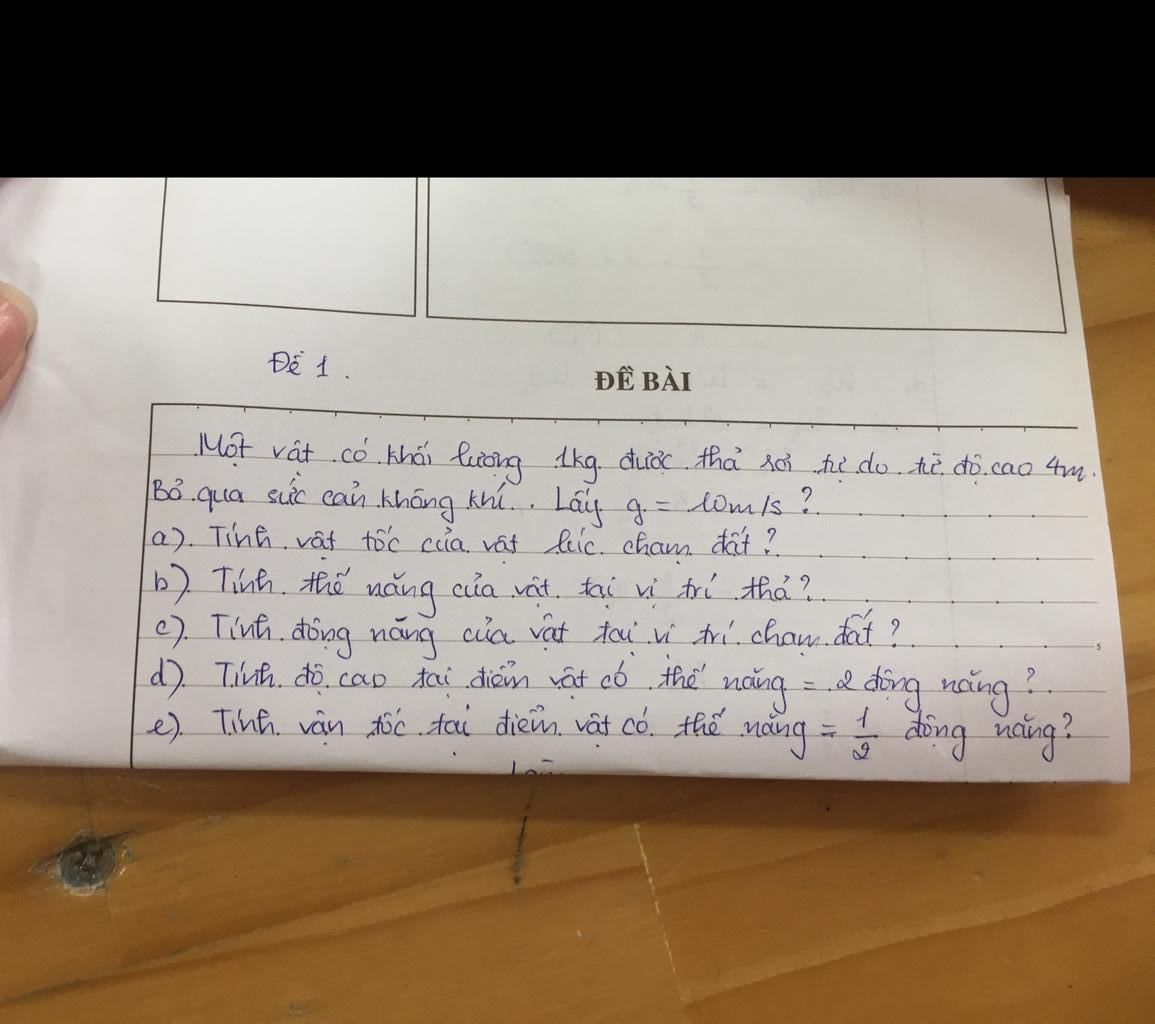 Đề 1.
ĐỀ BÀI
Một vật có khối lượng 1kg được thả rơi tự do từ độ cao 4m.
Bỏ qua sức cản không khí. Lấy g = 10m/s ?
a). Tính vật tốc của vật lúc chạm đất?
b). Tính thế năng của vật tại vị trí thả?
c). Tính động năng của vật tại vị trí chạm đất?
d). Tính độ cao tại điểm vật có thế năng = 2 động năng?
e). Tính vận tốc tại điểm vật có thế năng = 1/2 động năng?
5